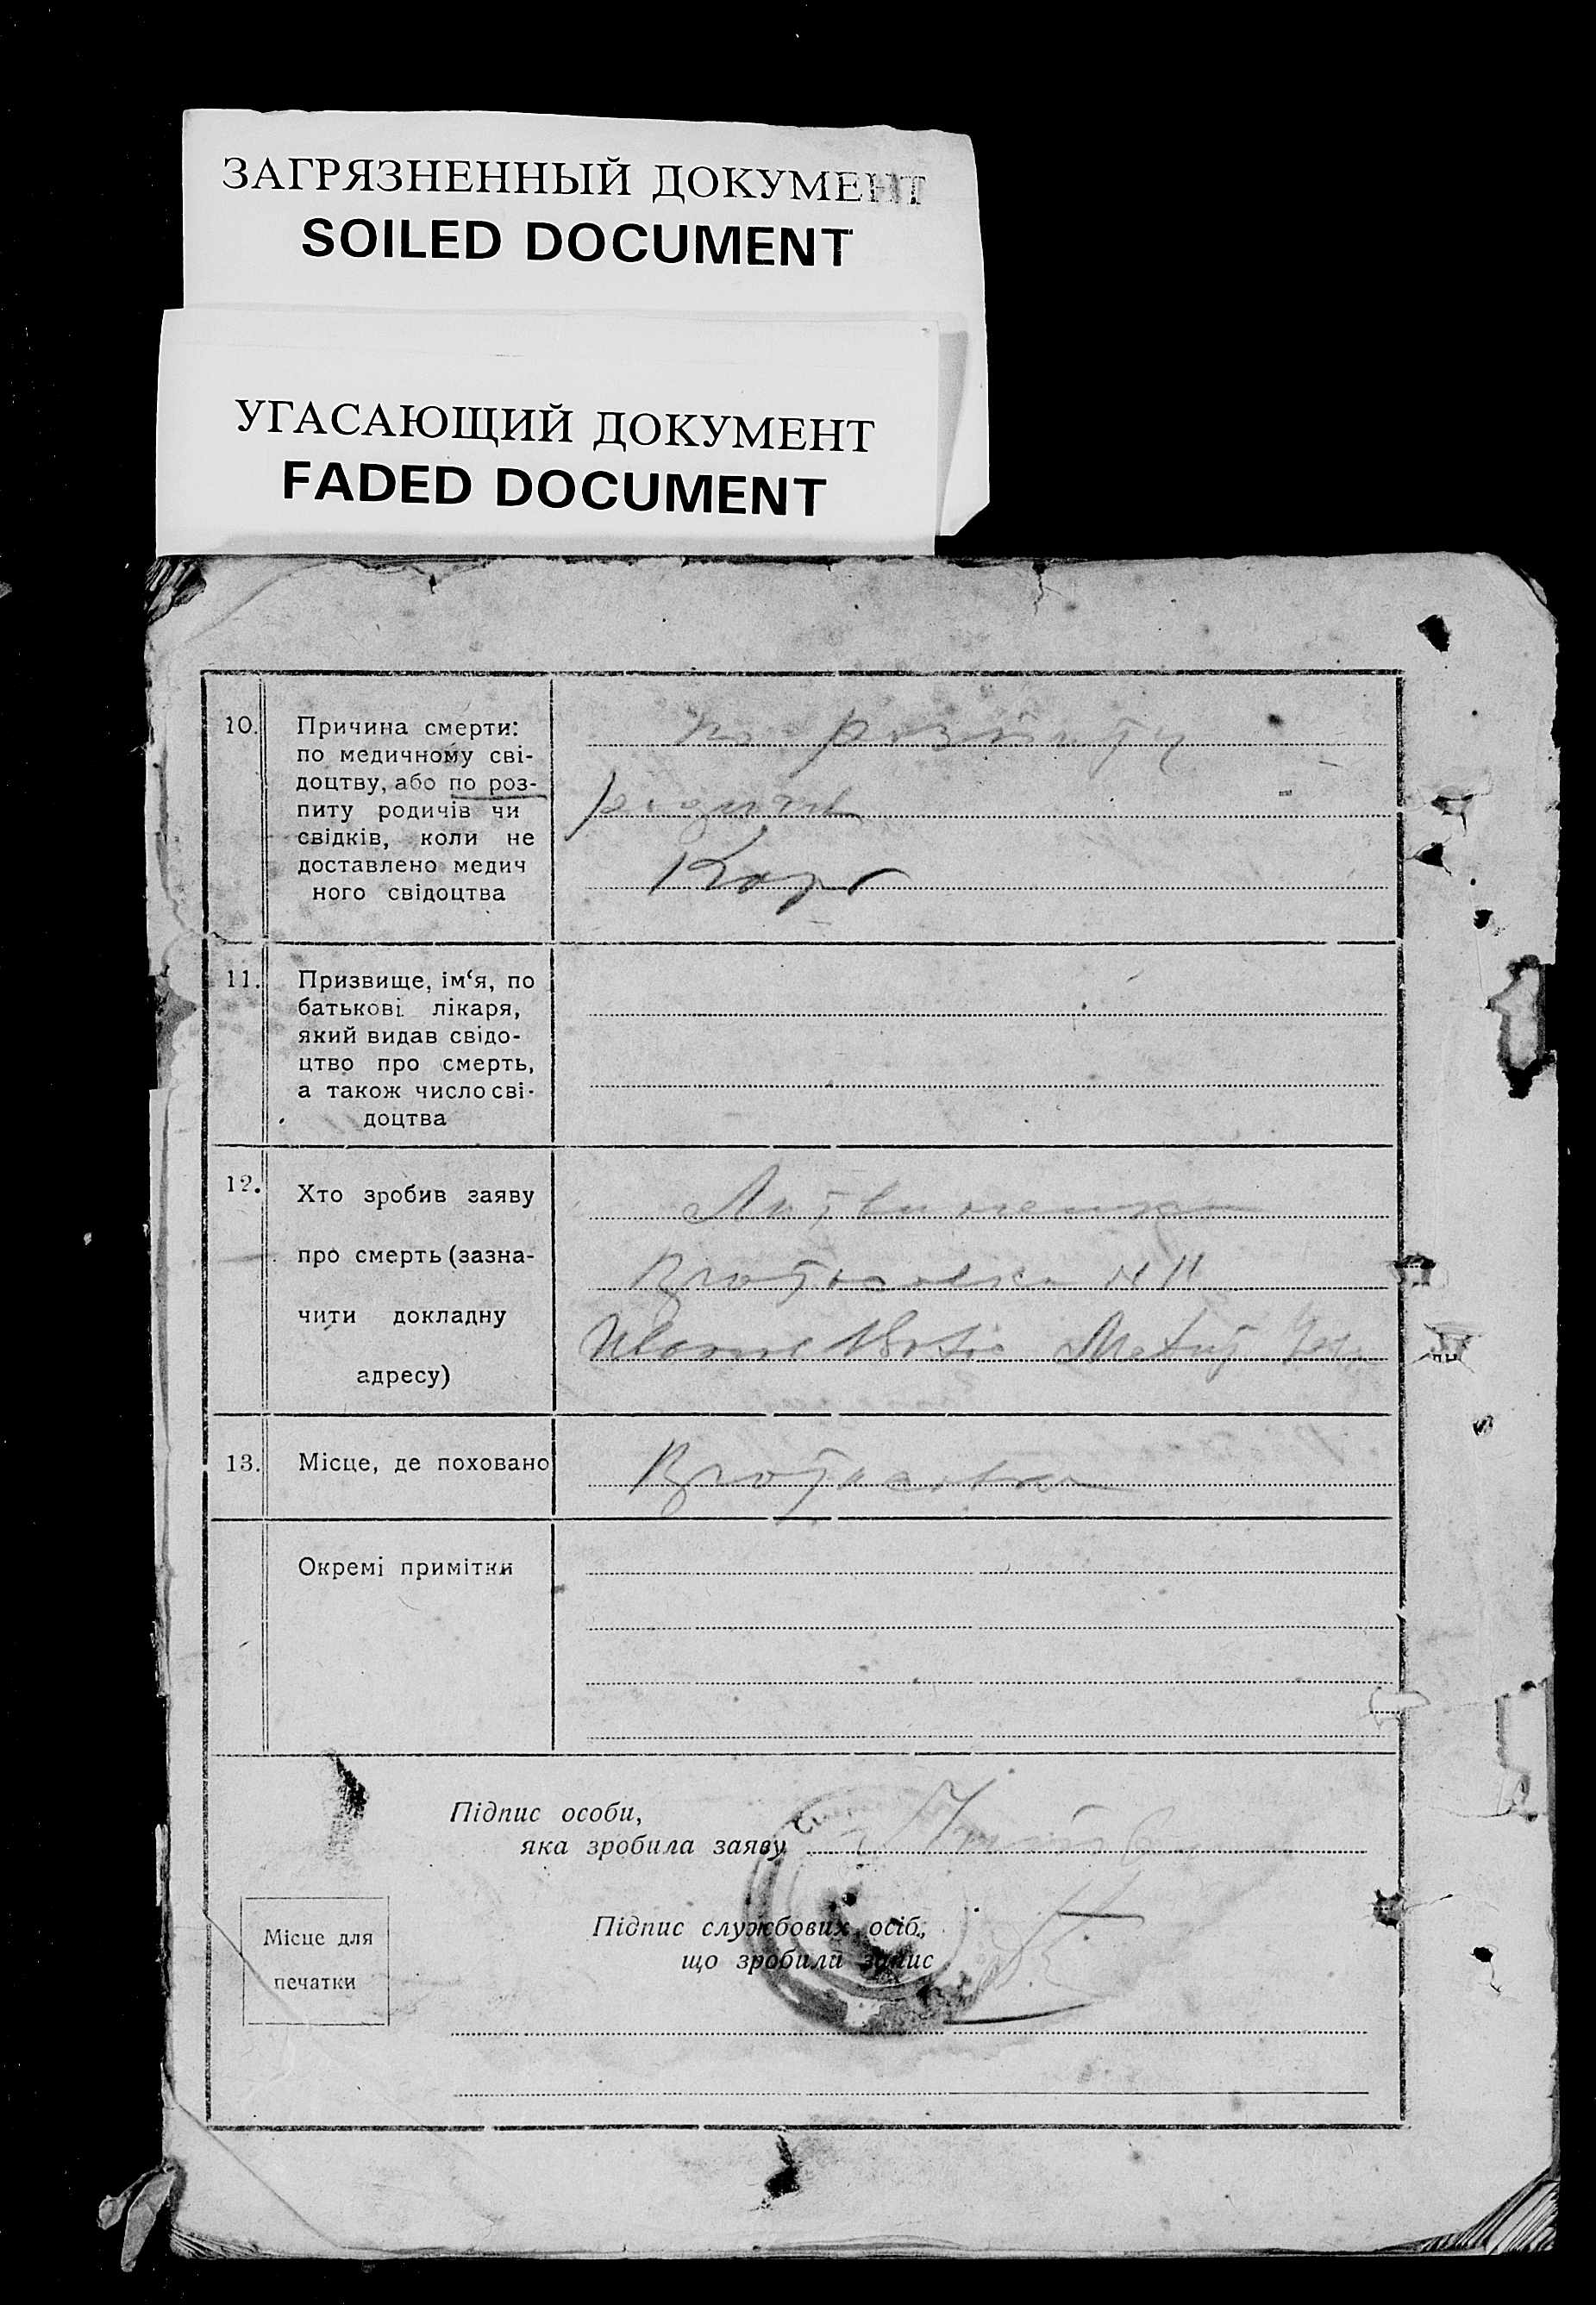 ЗАГРЯЗНЕННЫЙ ДОКУМЕНТ
SOILED DOCUMENT
УГАСАЮЩИЙ ДОКУМЕНТ
FADED DOCUMENT
10.
Причина смерти:
по медичному сві-
доцтву, або по роз-
питу родичів чи
свідків, коли не
доставлено медич
ного свідоцтва
по розпиту
родичів
Кор
11.
Призвище, ім‘я, по
батькові лікаря,
який видав свідо-
цтво про смерть,
а також число сві-
доцтва
12.
Хто зробив заяву
про смерть (зазна-
чити докладну
адресу)
13.
Місце, де поховано
Окремі примітки
Підпис особи,
яка зробила заяву
Місце для
печатки
Підпис службових осіб,
що зробили запис